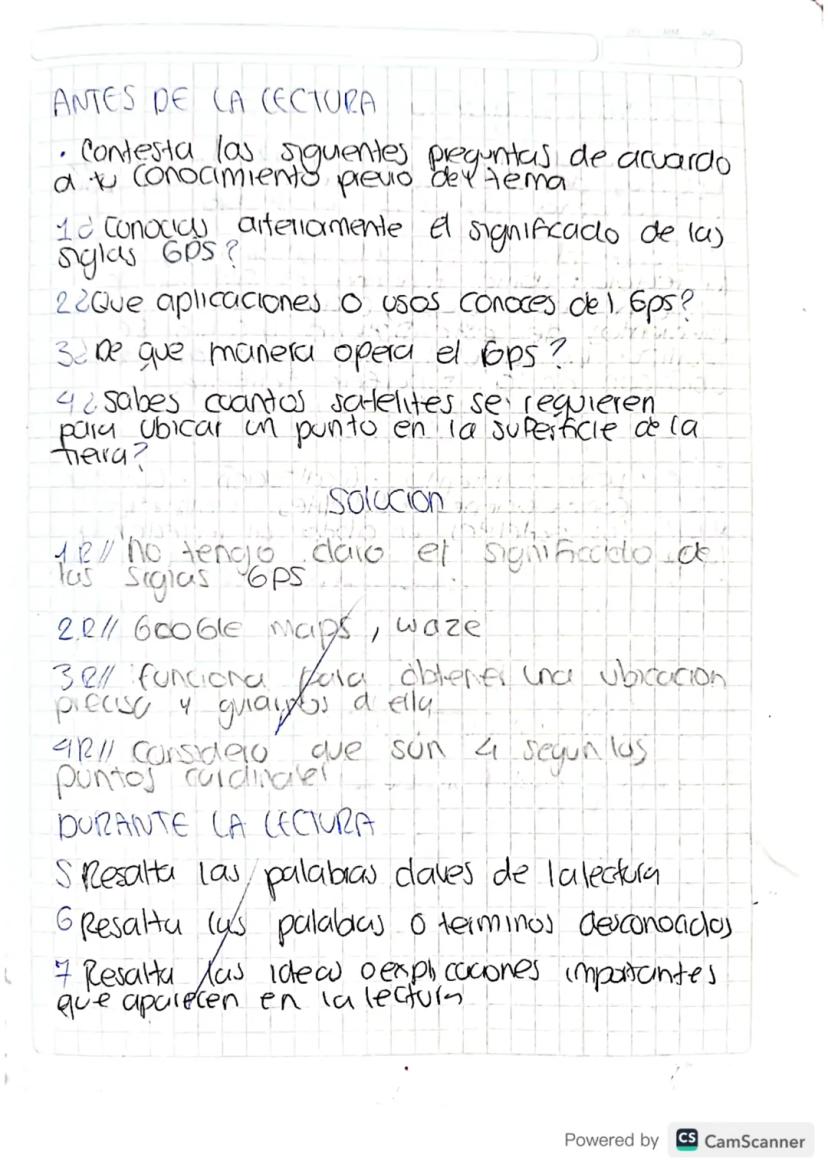 ANTES DE LA LECTURA
. Contesta las siguientes preguntas de acuardo
a tu conocimiento previo del tema
1¿ Conocias arteriamente el significado de las
siglas GPS?
2¿Que aplicaciones o usos conoces del Gps?
3¿ De que manera opera el GPS?
4¿ Sabes cuantos satelites se requieren
para ubicar un punto en la superficie de la
tierra?
Solucion
1R// no tengo claro el significado de
las siglas GPS
2R// GOOGle maps, waze
3R// funciona para obtener una ubicacion
precisa y guiarnos a ella
4R// Considero que son 4 segun los
puntos cardinales
DURANTE LA LECTURA
5 Resalta las palabras claves de la lectura
6 Resalta las palabras o terminos desconocidos
7 Resalta las ideas o explicaciones importantes
que aparecen en la lectura
Powered by CS CamScanner